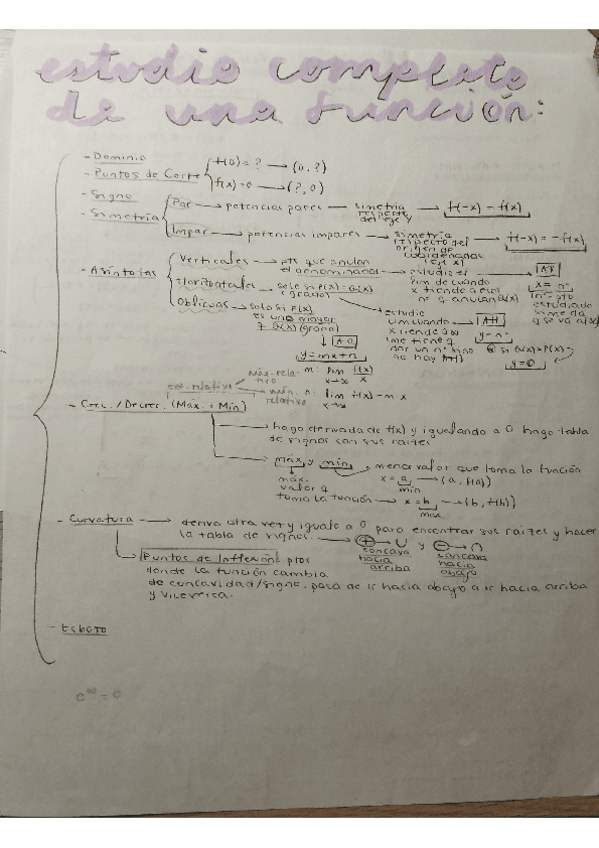 estudio completo
de una función:
- Dominio
- Puntos de Corte
f(0) = ? → (0, ?)
f(x) = 0 → (?, 0)
- Signo
- Simetría
Par → potencias pares → simetría respecto del eje y → f(-x) = f(x)
Impar → potencias impares → simetría respecto del origen de coordenadas → f(-x) = -f(x)
- Asíntotas
Verticales → pts que anulan el denominador → estudio es lim de cuando x tiende a esos nº q anulan Q(x)
x = nº
Horizontales → solo si P(x) = Q(x) (grados)
estudio lim cuando x tiende a ∞ me tiene q dar un nº sino no hay
A H
y = nº
si Q(x) > P(x)
y = 0
Oblicuas → solo si P(x) es uno mayor q Q(x) (grado)
A O
y = mx + n
m: lim x→∞ f(x)/x
n: lim x→∞ f(x) - mx
ext. relativo
máx. relativo
mín. relativo
- Crec. / Decrec. (Máx. + Mín)
hago derivada de f(x) y igualando a 0 hago tabla
de signos con sus raíces
máx y mín → menor valor que toma la función
x = a → (a, f(a))
mín
máx. valor q toma la función → x = b → (b, f(b))
máx
- Curvatura → derivo otra vez y igualo a 0 para encontrar sus raíces y hacer
la tabla de signos. → + → ∪ y - → ∩
cóncava hacia arriba
cóncava hacia abajo
Puntos de Inflexión: ptos
donde la función cambia
de concavidad/signo, pasa de ir hacia abajo a ir hacia arriba
y viceversa.
- Esbozo
e^∞ = 0